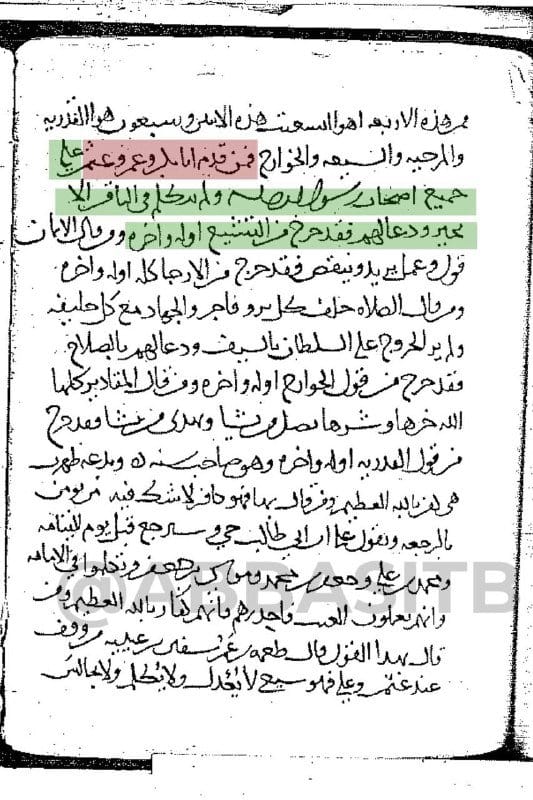 فمن هذه الاربعه اهوا انشعبت هذه الاثنين وسبعون هوا القدريه
والمرجيه والشيعه والخوارج فمن قدم ابا بكر وعمر وعثمن على
جميع اصحاب رسول الله صلى الله ولم يتكلم في الباقين الا
بخير ودعا لهم فقد خرج من التشيع اوله واخره ومن قال الايمان
قول وعمل يزيد وينقص فقد خرج من الارجا كله اوله واخره
ومن قال الصلاه خلف كل بر وفاجر والجهاد مع كل خليفه
ولم ير الخروج على السلطان بالسيف ودعا لهم بالصلاح
فقد خرج من قول الخوارج اوله واخره ومن قال المقادير كلها
الله خيرها وشرها يضل من يشا ويهدي من يشا فقد خرج
من قول القدريه اوله واخره وهو صاحب سنه وبدعه ظهرت
هي كفر بالله العظيم ومن قال بها فهو كافر لا شك فيه من يومن
بالرجعه ويقول علي ابن ابي طالب حي وسيرجع قبل يوم القيامه
ومحمد بن علي وجعفر بن محمد وموسى بن جعفر وتكلموا في الامامه
وانهم يعلمون الغيب فاحذرهم فانهم كفار بالله العظيم ومن
قال بهذا القول قال طعمه بن عمر وسفين بن عيينه من وقف
عند عثمن وعلي فهو شيعي لا يعدل ولا يكلم ولا يجالس
@ABBASITB